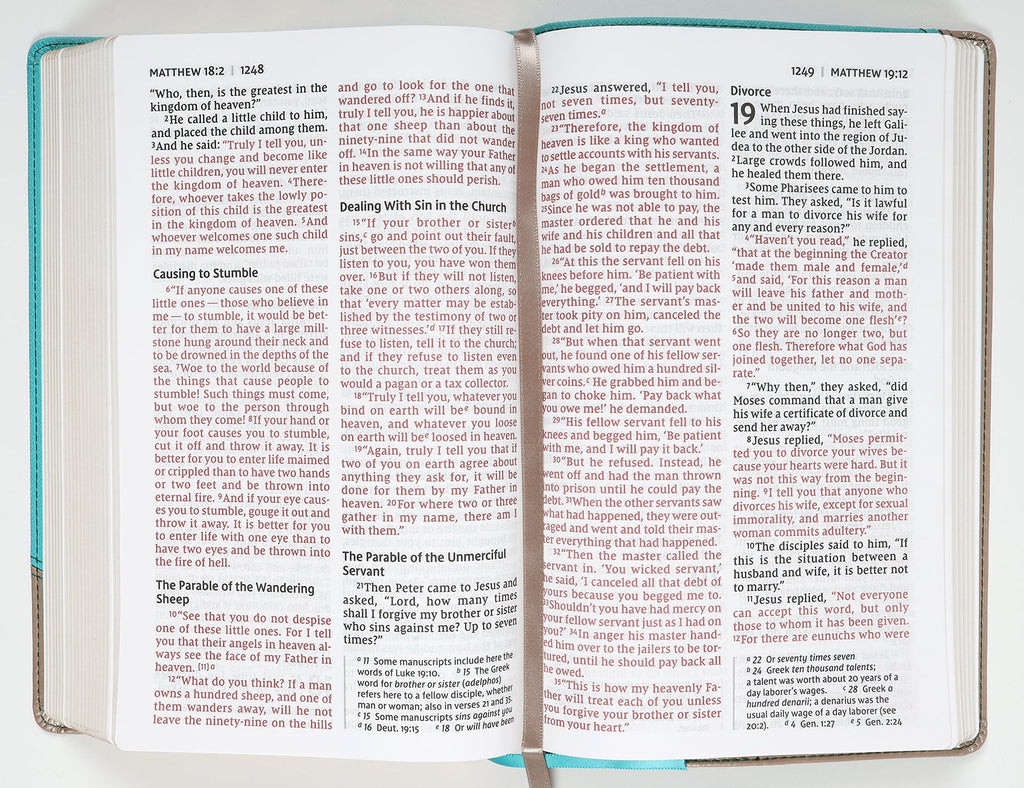 MATTHEW 18:2 | 1248
"Who, then, is the greatest in the
kingdom of heaven?"
2He called a little child to him,
and placed the child among them.
3And he said: "Truly I tell you, un-
less you change and become like
little children, you will never enter
the kingdom of heaven. 4There-
fore, whoever takes the lowly po-
sition of this child is the greatest
in the kingdom of heaven. 5And
whoever welcomes one such child
in my name welcomes me.
Causing to Stumble
6"If anyone causes one of these
little ones — those who believe in
me — to stumble, it would be bet-
ter for them to have a large mill-
stone hung around their neck and
to be drowned in the depths of the
sea. 7Woe to the world because of
the things that cause people to
stumble! Such things must come,
but woe to the person through
whom they come! 8If your hand or
your foot causes you to stumble,
cut it off and throw it away. It is
better for you to enter life maimed
or crippled than to have two hands
or two feet and be thrown into
eternal fire. 9And if your eye caus-
es you to stumble, gouge it out and
throw it away. It is better for you
to enter life with one eye than to
have two eyes and be thrown into
the fire of hell.
The Parable of the Wandering
Sheep
10"See that you do not despise
one of these little ones. For I tell
you that their angels in heaven al-
ways see the face of my Father in
heaven. [11] a
12"What do you think? If a man
owns a hundred sheep, and one of
them wanders away, will he not
leave the ninety-nine on the hills
and go to look for the one that
wandered off? 13And if he finds it,
truly I tell you, he is happier about
that one sheep than about the
ninety-nine that did not wander
off. 14In the same way your Father
in heaven is not willing that any of
these little ones should perish.
Dealing With Sin in the Church
15"If your brother or sister b
sins, c go and point out their fault,
just between the two of you. If they
listen to you, you have won them
over. 16But if they will not listen,
take one or two others along, so
that 'every matter may be estab-
lished by the testimony of two or
three witnesses.' d 17If they still re-
fuse to listen, tell it to the church;
and if they refuse to listen even
to the church, treat them as you
would a pagan or a tax collector.
18"Truly I tell you, whatever you
bind on earth will be e bound in
heaven, and whatever you loose
on earth will be e loosed in heaven.
19"Again, truly I tell you that if
two of you on earth agree about
anything they ask for, it will be
done for them by my Father in
heaven. 20For where two or three
gather in my name, there am I
with them."
The Parable of the Unmerciful
Servant
21Then Peter came to Jesus and
asked, "Lord, how many times
shall I forgive my brother or sister
who sins against me? Up to seven
times?"
a 11 Some manuscripts include here the
words of Luke 19:10. b 15 The Greek
word for brother or sister (adelphos)
refers here to a fellow disciple, whether
man or woman; also in verses 21 and 35.
c 15 Some manuscripts sins against you
d 16 Deut. 19:15 e 18 Or will have been
1249 | MATTHEW 19:12
22Jesus answered, "I tell you,
not seven times, but seventy-
seven times. a
23"Therefore, the kingdom of
heaven is like a king who wanted
to settle accounts with his servants.
24As he began the settlement, a
man who owed him ten thousand
bags of gold b was brought to him.
25Since he was not able to pay, the
master ordered that he and his
wife and his children and all that
he had be sold to repay the debt.
26"At this the servant fell on his
knees before him. 'Be patient with
me,' he begged, 'and I will pay back
everything.' 27The servant's mas-
ter took pity on him, canceled the
debt and let him go.
28"But when that servant went
out, he found one of his fellow ser-
vants who owed him a hundred sil-
ver coins. c He grabbed him and be-
gan to choke him. 'Pay back what
you owe me!' he demanded.
29"His fellow servant fell to his
knees and begged him, 'Be patient
with me, and I will pay it back.'
30"But he refused. Instead, he
went off and had the man thrown
into prison until he could pay the
debt. 31When the other servants saw
what had happened, they were out-
raged and went and told their mas-
ter everything that had happened.
32"Then the master called the
servant in. 'You wicked servant,'
he said, 'I canceled all that debt of
yours because you begged me to.
33Shouldn't you have had mercy on
your fellow servant just as I had on
you?' 34In anger his master hand-
ed him over to the jailers to be tor-
tured, until he should pay back all
he owed.
35"This is how my heavenly Fa-
ther will treat each of you unless
you forgive your brother or sister
from your heart."
Divorce
19 When Jesus had finished say-
ing these things, he left Gali-
lee and went into the region of Ju-
dea to the other side of the Jordan.
2Large crowds followed him, and
he healed them there.
3Some Pharisees came to him to
test him. They asked, "Is it lawful
for a man to divorce his wife for
any and every reason?"
4"Haven't you read," he replied,
"that at the beginning the Creator
'made them male and female,' d
5and said, 'For this reason a man
will leave his father and moth-
er and be united to his wife, and
the two will become one flesh' e?
6So they are no longer two, but
one flesh. Therefore what God has
joined together, let no one sepa-
rate."
7"Why then," they asked, "did
Moses command that a man give
his wife a certificate of divorce and
send her away?"
8Jesus replied, "Moses permit-
ted you to divorce your wives be-
cause your hearts were hard. But it
was not this way from the begin-
ning. 9I tell you that anyone who
divorces his wife, except for sexual
immorality, and marries another
woman commits adultery."
10The disciples said to him, "If
this is the situation between a
husband and wife, it is better not
to marry."
11Jesus replied, "Not everyone
can accept this word, but only
those to whom it has been given.
12For there are eunuchs who were
a 22 Or seventy times seven
b 24 Greek ten thousand talents;
a talent was worth about 20 years of a
day laborer's wages. c 28 Greek a
hundred denarii; a denarius was the
usual daily wage of a day laborer (see
20:2). d 4 Gen. 1:27 e 5 Gen. 2:24